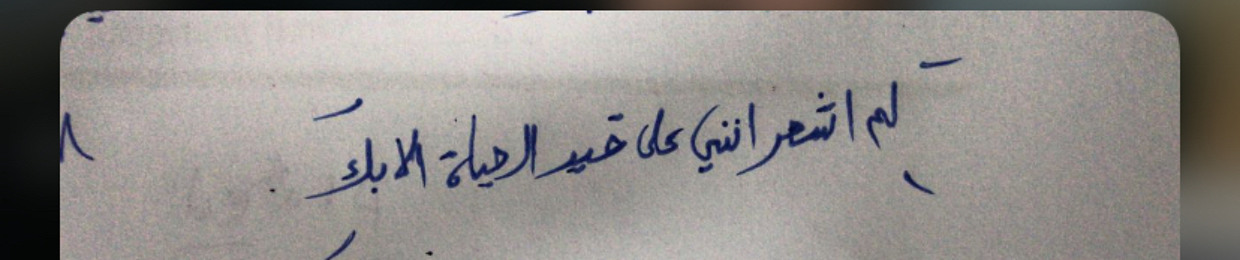 لم اشعر انني على قيد الحياة الا بك